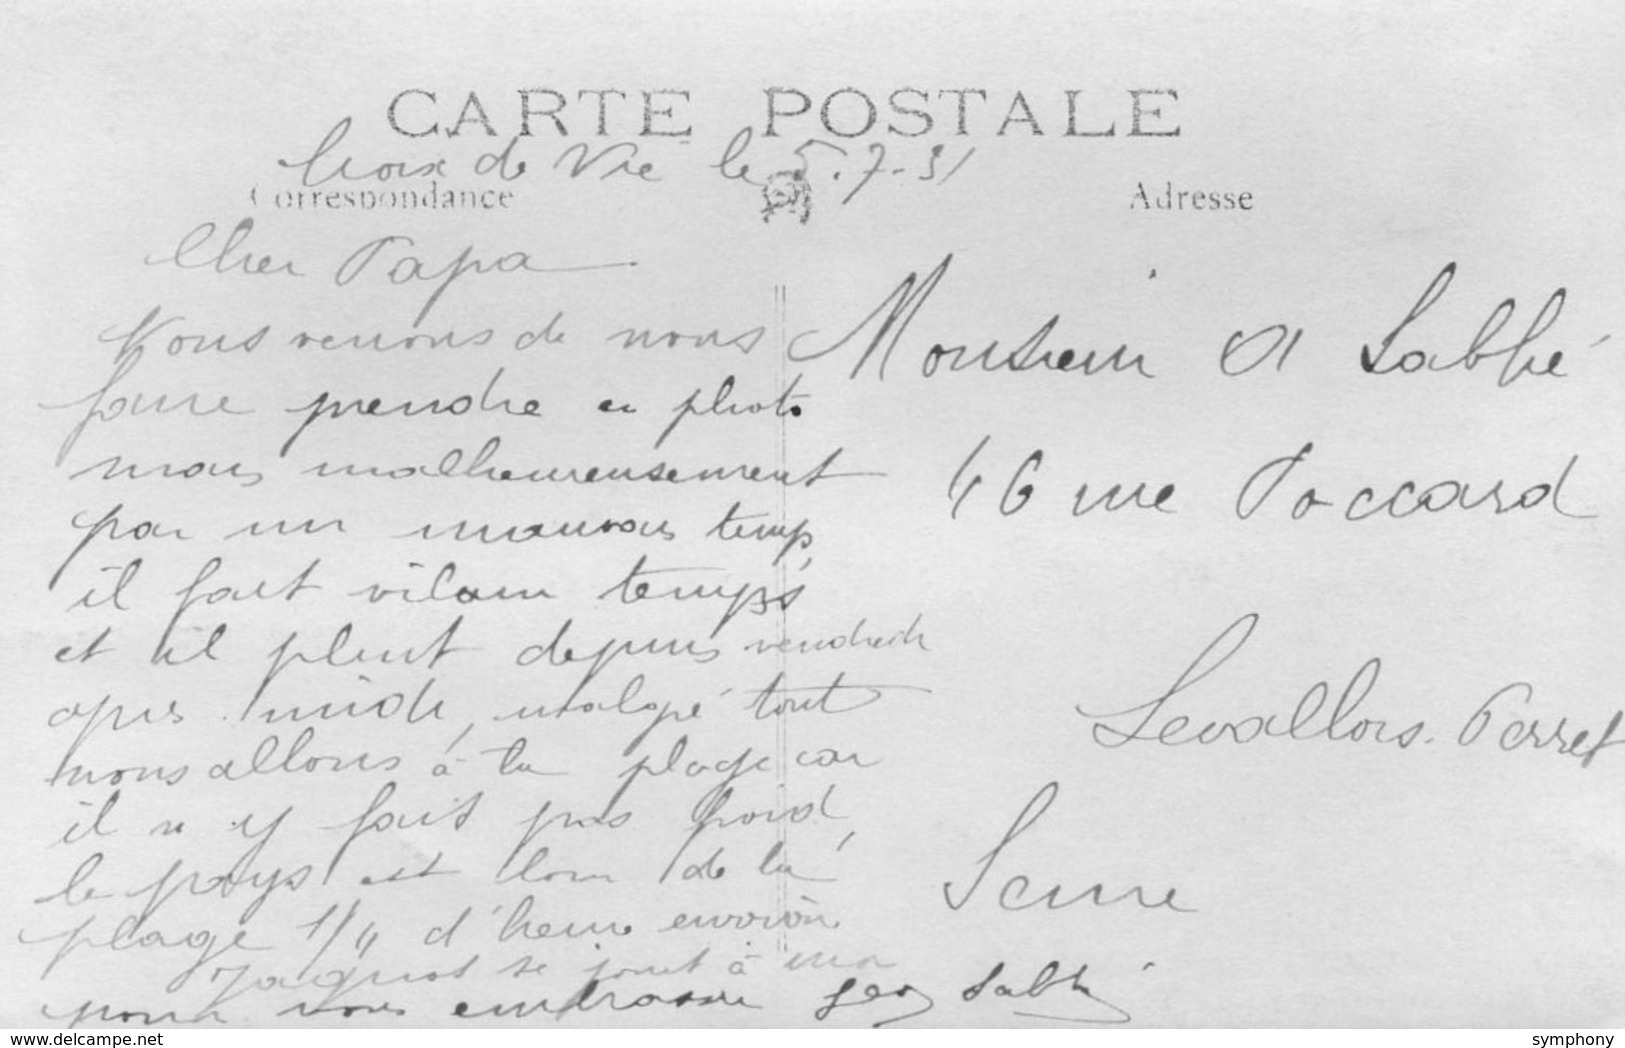 CARTE POSTALE
Croix de Vie le 5.7-31
Correspondance
Adresse
Cher Papa
Nous venons de nous
faire prendre en photo
mais malheureusement
par un mauvais temps,
il fait vilain temps
et il pleut depuis vendredi
apres midi, malgré tout
nous allons à la plage car
il n y fait pas froid,
le pays est loin de la
plage 1/4 d'heure environ
Jaquot se joint à moi
pour vous embrasser Geo Labbé
Monsieur A Labbé
46 rue Poccard
Levallois-Perret
Seine
www.delcampe.net
symphony